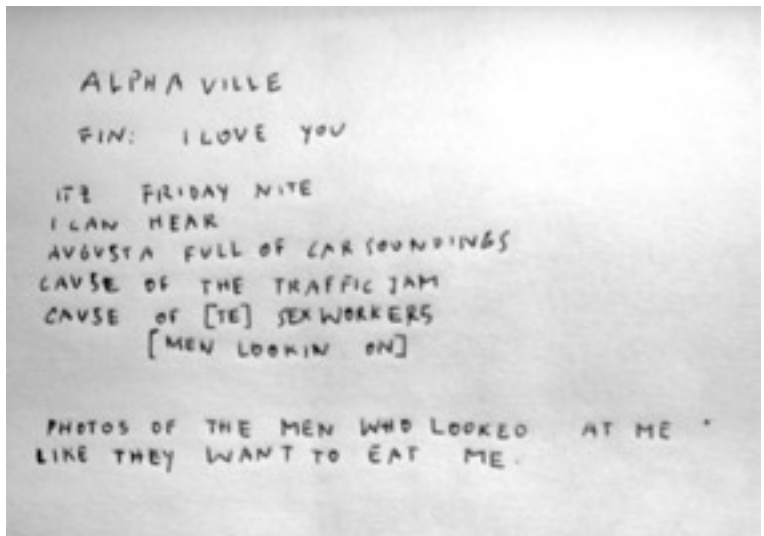 ALPHAVILLE
FIN: I LOVE YOU
ITZ FRIDAY NITE
I CAN HEAR
AUGUSTA FULL OF CAR SOUNDINGS
CAUSE OF THE TRAFFIC JAM
CAUSE OF [TE] SEX WORKERS
[MEN LOOKIN ON]
PHOTOS OF THE MEN WHO LOOKED AT ME
LIKE THEY WANT TO EAT ME.